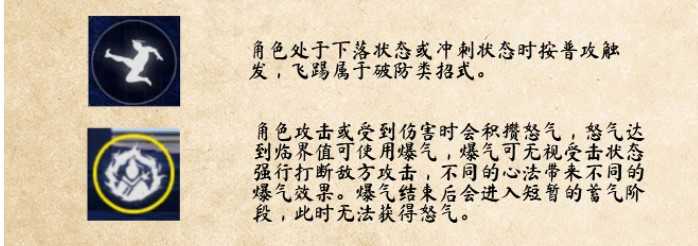 角色处于下落状态或冲刺状态时按普攻触
发，飞踢属于破防类招式。
角色攻击或受到伤害时会积攒怒气，怒气达
到临界值可使用爆气，爆气可无视受击状态
强行打断敌方攻击，不同的心法带来不同的
爆气效果。爆气结束后会进入短暂的蓄气阶
段，此时无法获得怒气。